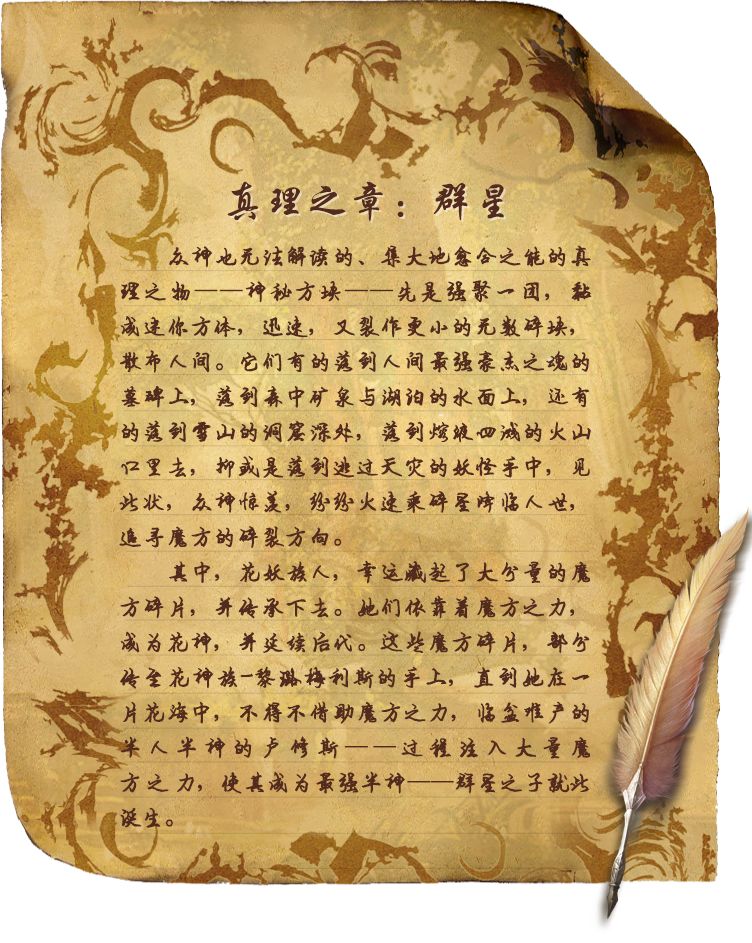 真理之章：群星
众神也无法解读的、集大地愈合之能的真
理之物——神秘方块——先是强聚一团，黏
成迷你方体，迅速，又裂作更小的无数碎块，
散布人间。它们有的落到人间最强豪杰之魂的
墓碑上，落到森中矿泉与湖泊的水面上，还有
的落到雪山的洞窟深处，落到熔液四溅的火山
口里去，抑或是落到逃过天灾的妖怪手中，见
此状，众神惊羡，纷纷火速乘碎星降临人世，
追寻魔方的碎裂方向。
其中，花妖族人，幸运藏起了大分量的魔
方碎片，并传承下去。她们依靠着魔方之力，
成为花神，并延续后代。这些魔方碎片，部分
传至花神族-黎璐梅利斯的手上，直到她在一
片花海中，不得不借助魔方之力，临盆难产的
半人半神的卢修斯——过程注入大量魔
方之力，使其成为最强半神——群星之子就此
诞生。